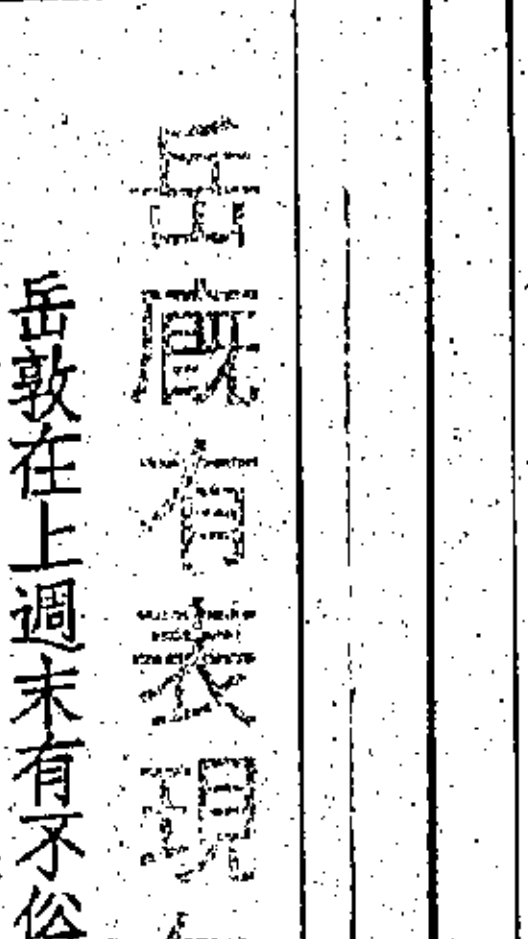 岳廐有表現
岳敦在上週末有不俗